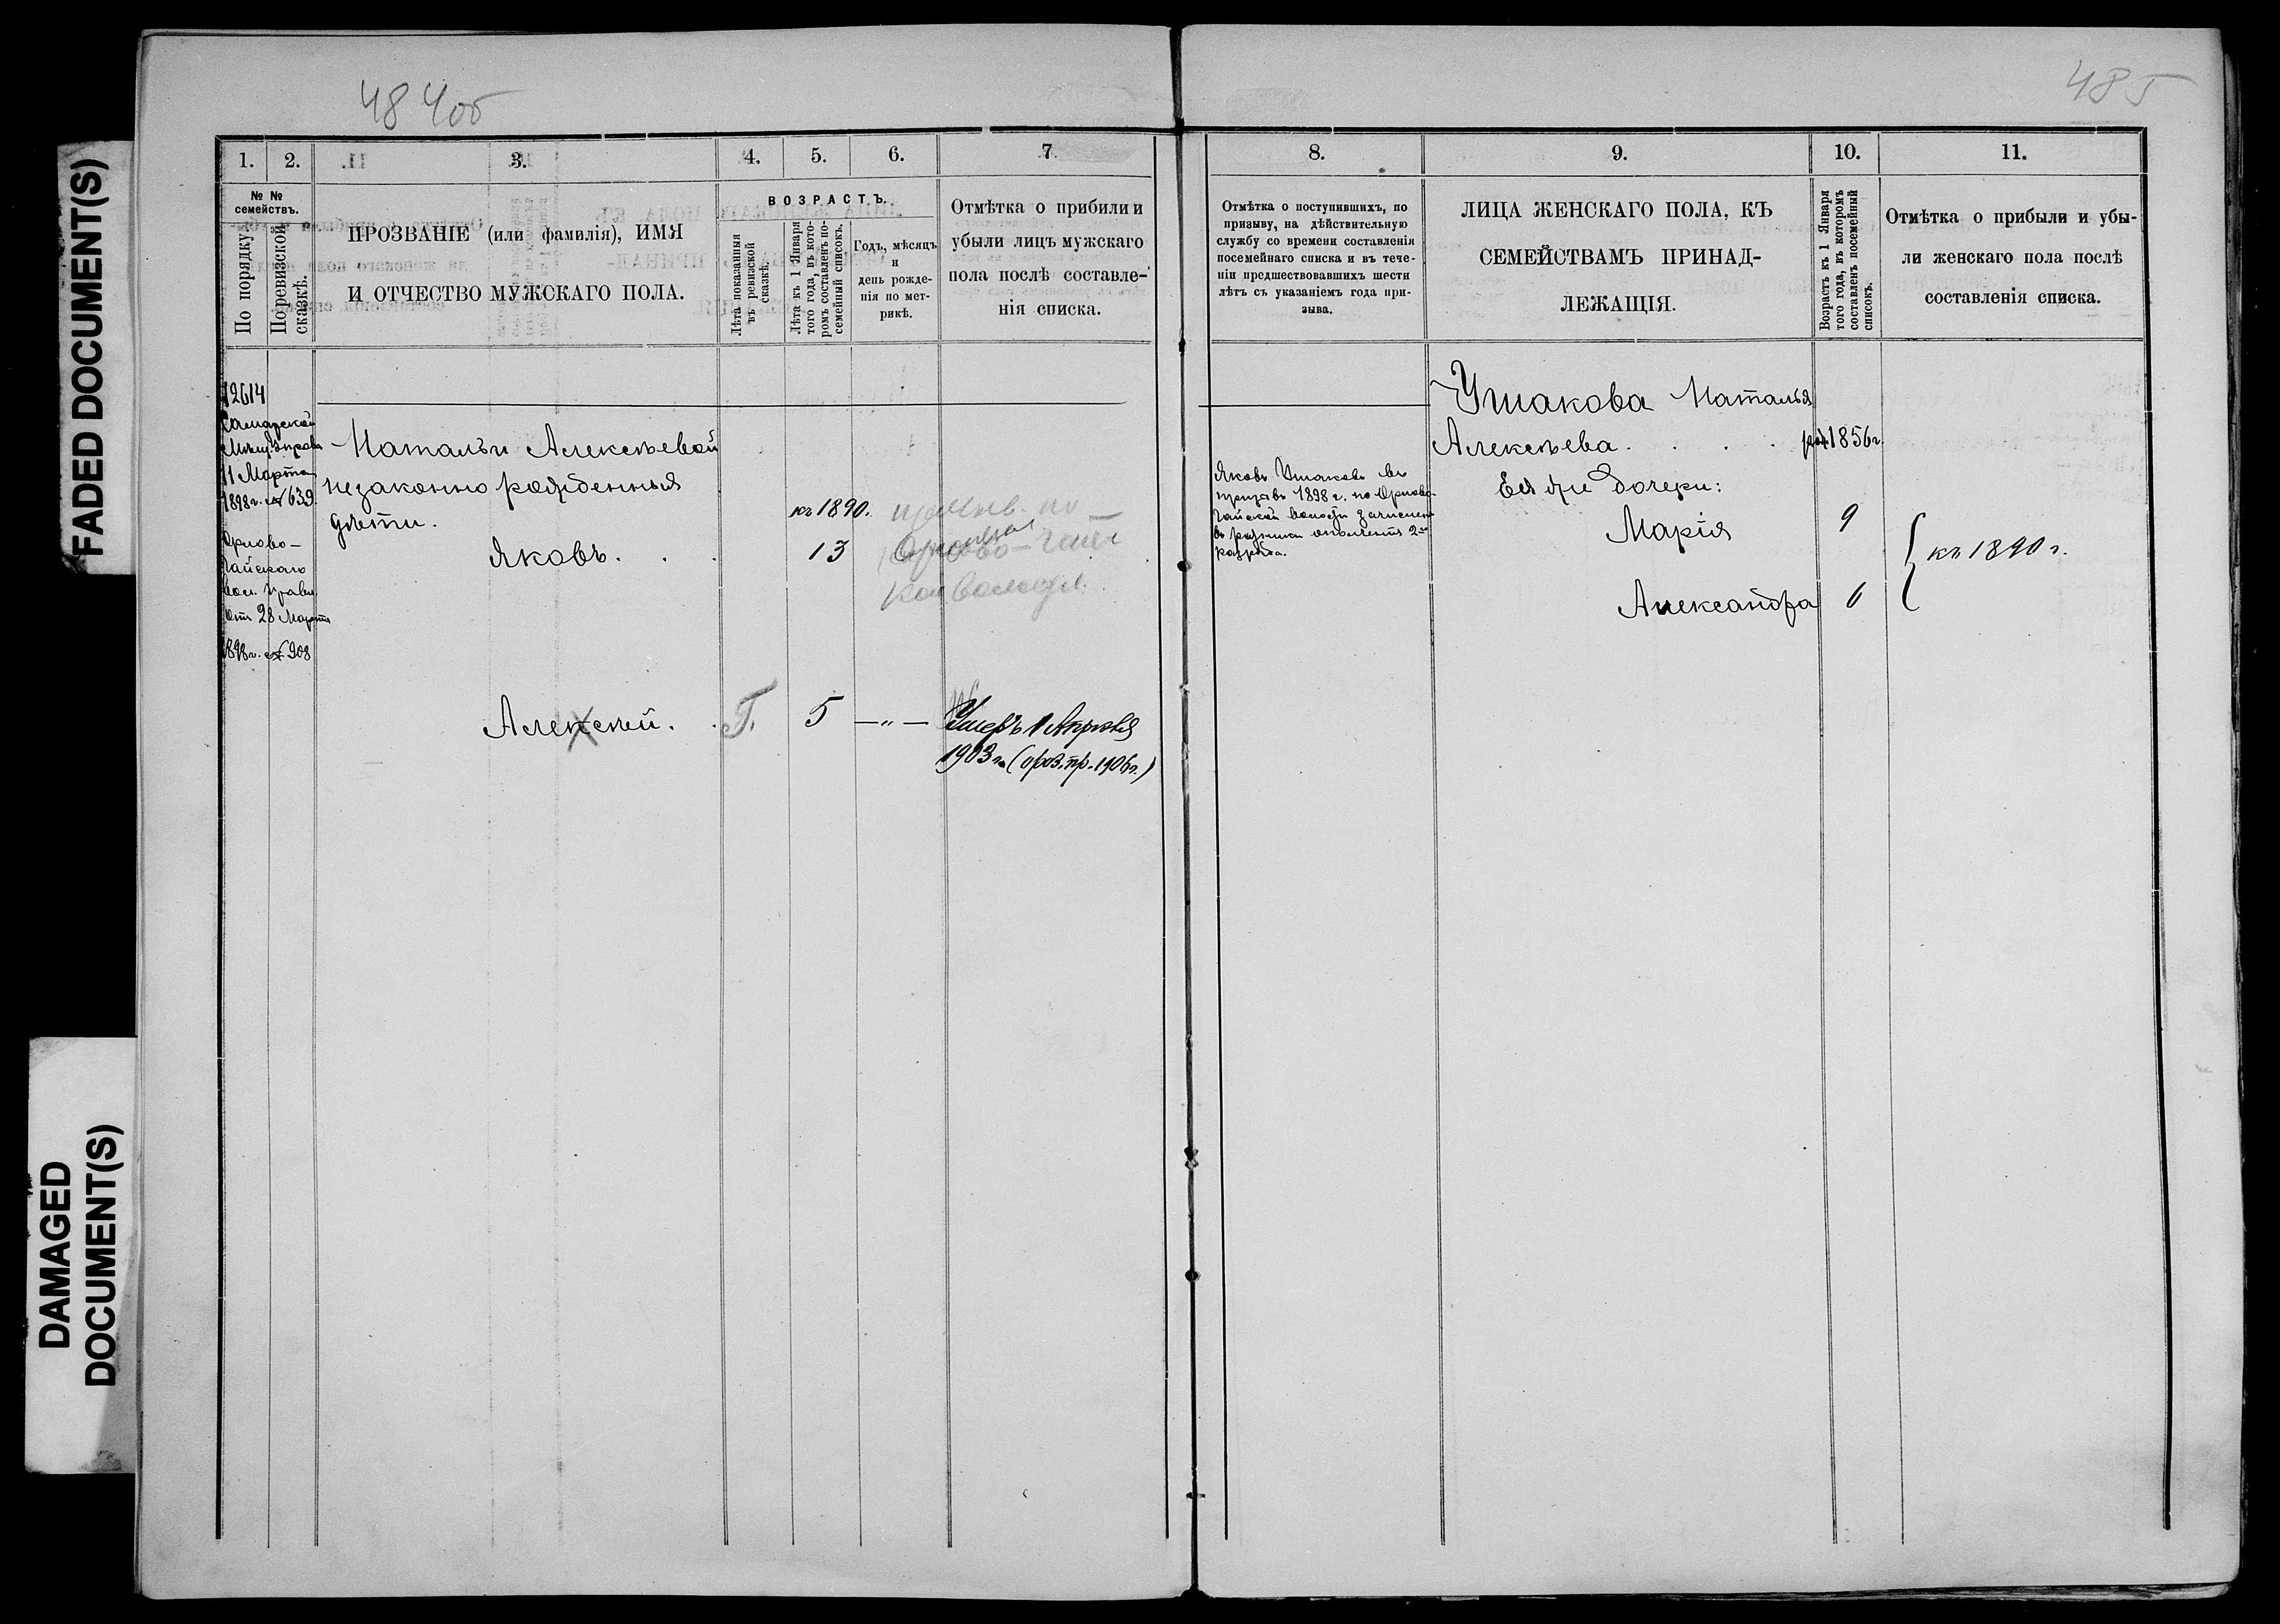 FADED DOCUMENT(S)
DAMAGED
DOCUMENT(S)
484об
1.
2.
3.
4.
5.
6.
7.
№ №
семействъ.
По порядку.
По ревизской
сказкѣ.
ПРОЗВАНІЕ (или фамилія), ИМЯ
И ОТЧЕСТВО МУЖСКАГО ПОЛА.
ВОЗРАСТЪ.
Лѣта показанныя
въ ревизской
сказкѣ.
Лѣта къ 1 Января
того года, въ кото-
ромъ составленъ по-
семейный списокъ.
Годъ, мѣсяцъ
и
день рожде-
нія по мет-
рикѣ.
Отмѣтка о прибыли и
убыли лицъ мужскаго
пола послѣ составле-
нія списка.
12614
Самарской
Мѣщ. Управы
11 Марта
1898 г. № 639.
Орлово-
Гайскаго
Вол. Правл.
отъ 28 Марта
1898 г. № 908
Натальи Алексѣевой
незаконно рожденныя
дѣти.
къ 1890.
Яковъ. . .
13
по
Орлово-Гай
Алексѣй. .
Г.
5
— „ —
Умеръ 1 Апрѣля
1903 г. (пр. 1906 г.)
485
8.
9.
10.
11.
Отмѣтка о поступившихъ, по
призыву, на дѣйствительную
службу со времени составленія
посемейнаго списка и въ тече-
ніи предшествовавшихъ шести
лѣтъ съ указаніемъ года при-
зыва.
ЛИЦА ЖЕНСКАГО ПОЛА, КЪ
СЕМЕЙСТВАМЪ ПРИНАД-
ЛЕЖАЩІЯ.
Возрастъ къ 1 Января
того года, въ которомъ
составленъ посемейный
списокъ.
Отмѣтка о прибыли и убы-
ли женскаго пола послѣ
составленія списка.
Ушакова Наталья
Алексѣева. . . . род. 1856 г.
Яковъ Ушаковъ въ
призывъ 1898 г. по Орлово-
Гайской волости зачисленъ
въ ратники ополченія 2го
разряда.
Ея же дочери:
Марія
9
къ 1890 г.
Александра
6